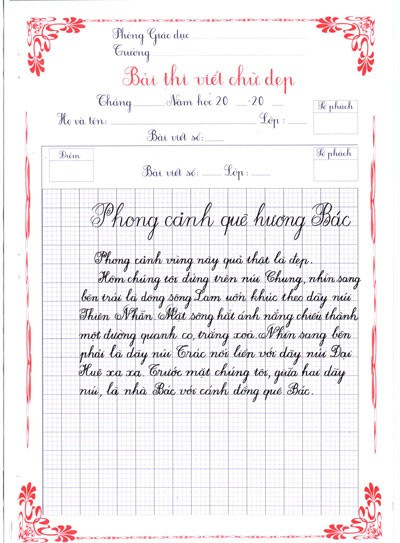 Phòng Giáo dục
Trường
Bài thi viết chữ đẹp
Tháng Năm học 20 20
Số phách
Họ và tên: Lớp:
Bài viết số:
Điểm
Số phách
Bài viết số: Lớp:
Phong cảnh quê hương Bác
Phong cảnh vùng này quả thật là đẹp.
Hôm chúng tôi đứng trên núi Chung, nhìn sang
bên trái là dòng sông Lam uốn khúc theo dãy núi
Thiên Nhẫn. Mặt sông hắt ánh nắng chiếu thành
một đường quanh co, trắng xoá. Nhìn sang bên
phải là dãy núi Trác nối liền với dãy núi Đại
Huệ xa xa. Trước mặt chúng tôi, giữa hai dãy
núi, là nhà Bác với cánh đồng quê Bác.